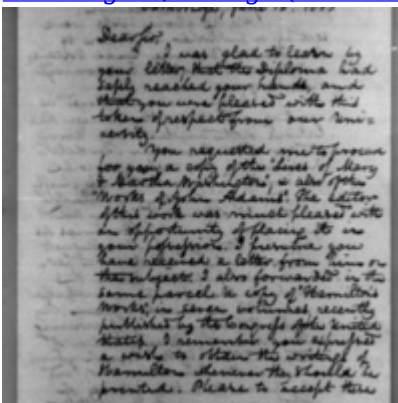 Dear Sir,
I was glad to learn by
your letter, that the Diploma had
safely reached your hands, and
that you were pleased with this
token of respect from our Uni-
versity.
You requested me to procure
for you a copy of the "Lives of Mary
& Martha Washington", & also of the
Works of John Adams". The editor
of this work was much pleased with
an opportunity of placing it in
your possession. I presume you
have received a letter from him on
the subject. I also forwarded in the
same parcel a copy of "Hamilton's
Works", in seven volumes, recently
published by the Congress of the United
States. I remember you expressed
a wish to obtain the writings of
Hamilton whenever they should be
printed. Please to accept these